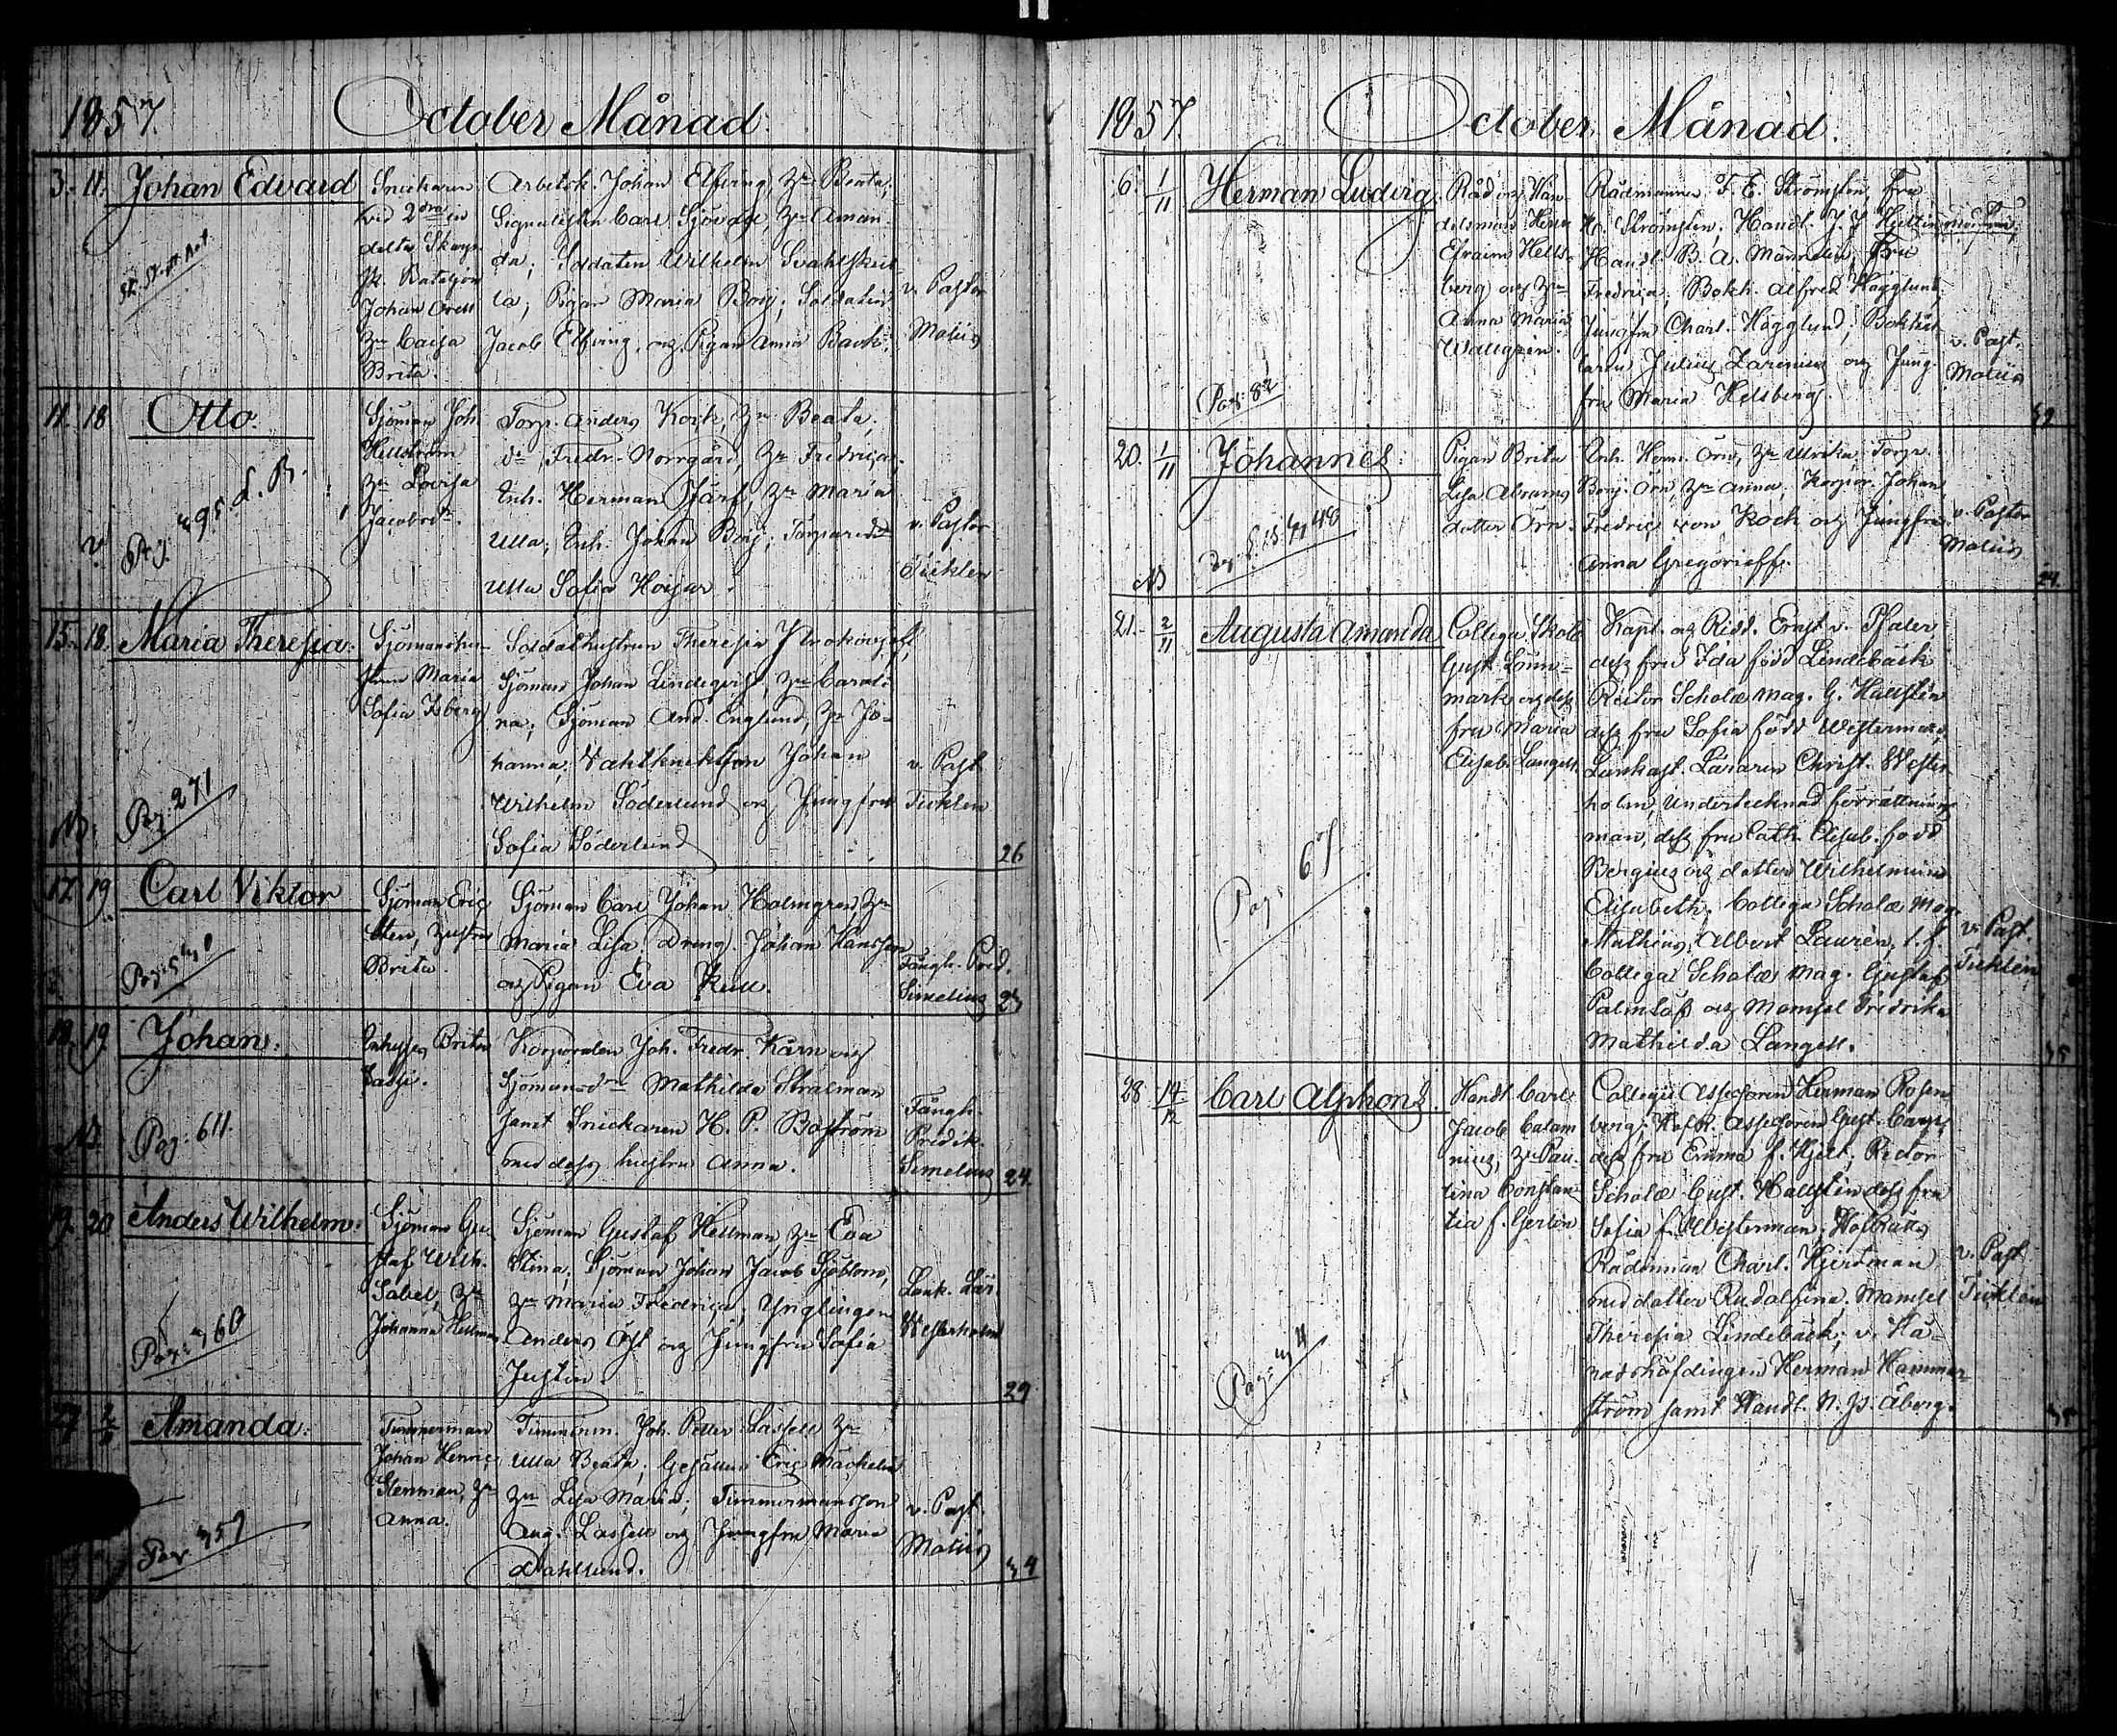 1857.
October Månad.
3. 11. Johan Edvard
Snickaren
vid 2dra in
delta Skarp
sk. Bataljon
Johan
hu Caisa
Brita.
Arbetsk. Johan Elfving, hu Beata;
Signalisten Carl
da; Soldaten Wilhelm
la; Pigan Maria Borg; Soldaten
Jacob Elfving, och Pigan Anna
v. Pastor
Molin
11. 18 Otto.
495 L. B.
Sjöman Joh.
Hellström
hu Lovisa
Jacobsdr.
Torp. Anders Koch, hu Beata;
do Fredr. Norrgård, hu Fredrica
Enh. Herman Järf, hu Maria
Ulla; Enh. Johan Borg; Torparedr
Ulla Sofia
v. Pastor
Ticklén
15. 18. Maria Theresia.
Pag: 271
Sjömanshu-
strun Maria
Sofia Isberg
Soldathustrun Theresia
Sjöman Johan Lindeqvist, hu Caroli
na; Sjöman And. Englund, hu Jo-
hanna; Vaktknektson Johan
Wilhelm Söderlund och Jungfru
Sofia Söderlund
v. Past
Ticklén
26
17 19. Carl Viktor
Sjöman Eric
Sten, hustru
Brita.
Sjöman Carl Johan Holmgren, hu
Maria Lisa; Dreng. Johan Hansson
och Pigan Eva Kull.
Fångh. Pred.
Simelius
18. 19. Johan.
Pag: 611.
Enh. Brita
Korporalen Joh. Fredr. Kärn och
Sjömansdr Mathilda Strålman
samt Snickaren H. P. Boström
med dess hustru Anna.
Fångh.
Predik.
Simelius
24.
19. 20 Anders Wilhelm.
Pag: 360
Sjöman Gu
staf Wilh.
Sabel, hu
Johanna Hellman
Sjöman Gustaf Hellman, hu Eva
Stina; Sjöman Johan Jacob Sjöblom,
hu Maria Fredrica; Ynglingen
Anders Öst och Jungfru Sofia
Justin.
Lank. Lär.
Westerholm
29.
27 2/11 Amanda.
Pag 359
Timmerman
Johan Henric
Stenman, hu
Anna.
Timmerm. Joh. Petter Lassell hu
Ulla Beata; Gesällen Eric Mäckelin
hu Lisa Maria; Timmermansson
Aug. Lassell och Jungfru Maria
Dahllund.
v. Past.
Molin
34
1857.
October Månad.
6. 1/11 Herman Ludvig.
Pag: 82
Råd och Han-
delsman Herr
Efraim Hells-
berg och hu
Anna Maria
Wallgrén.
Rådmannen F. E. Strömsten, Fru
H. Strömsten; Handl. J. J. Hjelt
Handl. B. A. Mannelin, Fru
Fredrica; Bokh. Alfred Hägglund,
Jungfru Charl. Hägglund; Bokhål
laren Julius Zarenius och Jung-
fru Maria Helsberg.
v. Past.
Molin
20. 1/11 Johannes.
Pigan Brita
Lisa Abrams
dotter Örn.
Enh. Herm. Örn, hu Ulrika; Torp.
Benj. Örn, hu Anna; Johan
Fredric von Koch och Jungfru
Anna Gregorieff.
v. Pastor
Molin
24.
21. 2/11 Augusta Amanda
Pag. 67
Collega Skolæ
Gust. Lönn-
mark och dess
fru Maria
Elisab. Langell.
Kapt. och Ridd. Ernst v. Pfaler,
dess fru Ida född Lindebäck
Rector Scholæ Mag. G. Hallstén
dess fru Sofia född Westerman,
Lankast. Läraren Christ. Wester
holm, Undertecknad förrättnings
man, dess fru Cath. Elisab. född
Bergius och dotter Wilhelmina
Elisabeth; Collega Scholæ Mag.
Mathias Albert Laurén, t. f.
Collega Scholæ Mag. Gustaf
Palmlöf och Mamsel Fredrika
Mathilda Langell.
v. Past.
Ticklén
35
28 14/12 Carl Alphons.
Handl. Carl
Jacob Calam
nius, hu Pau-
lina Constan
tia f. Gerlin
Collegii Assessoren Herman Rosen
berg; HofR. Assessoren Gust.
dess fru Emma f. Hjelt; Rector
Scholæ Gust. Hallstén dess fru
Sofia f. Westerman; Hofrätts
Rådman Charl. Hjertman
med dotter Rudolfina; Mamsel
Theresia Lindebäck; v. Hä-
radshöfdingen Herman Hammar
ström samt Handl. N. P. Åberg.
v. Past
Ticklén